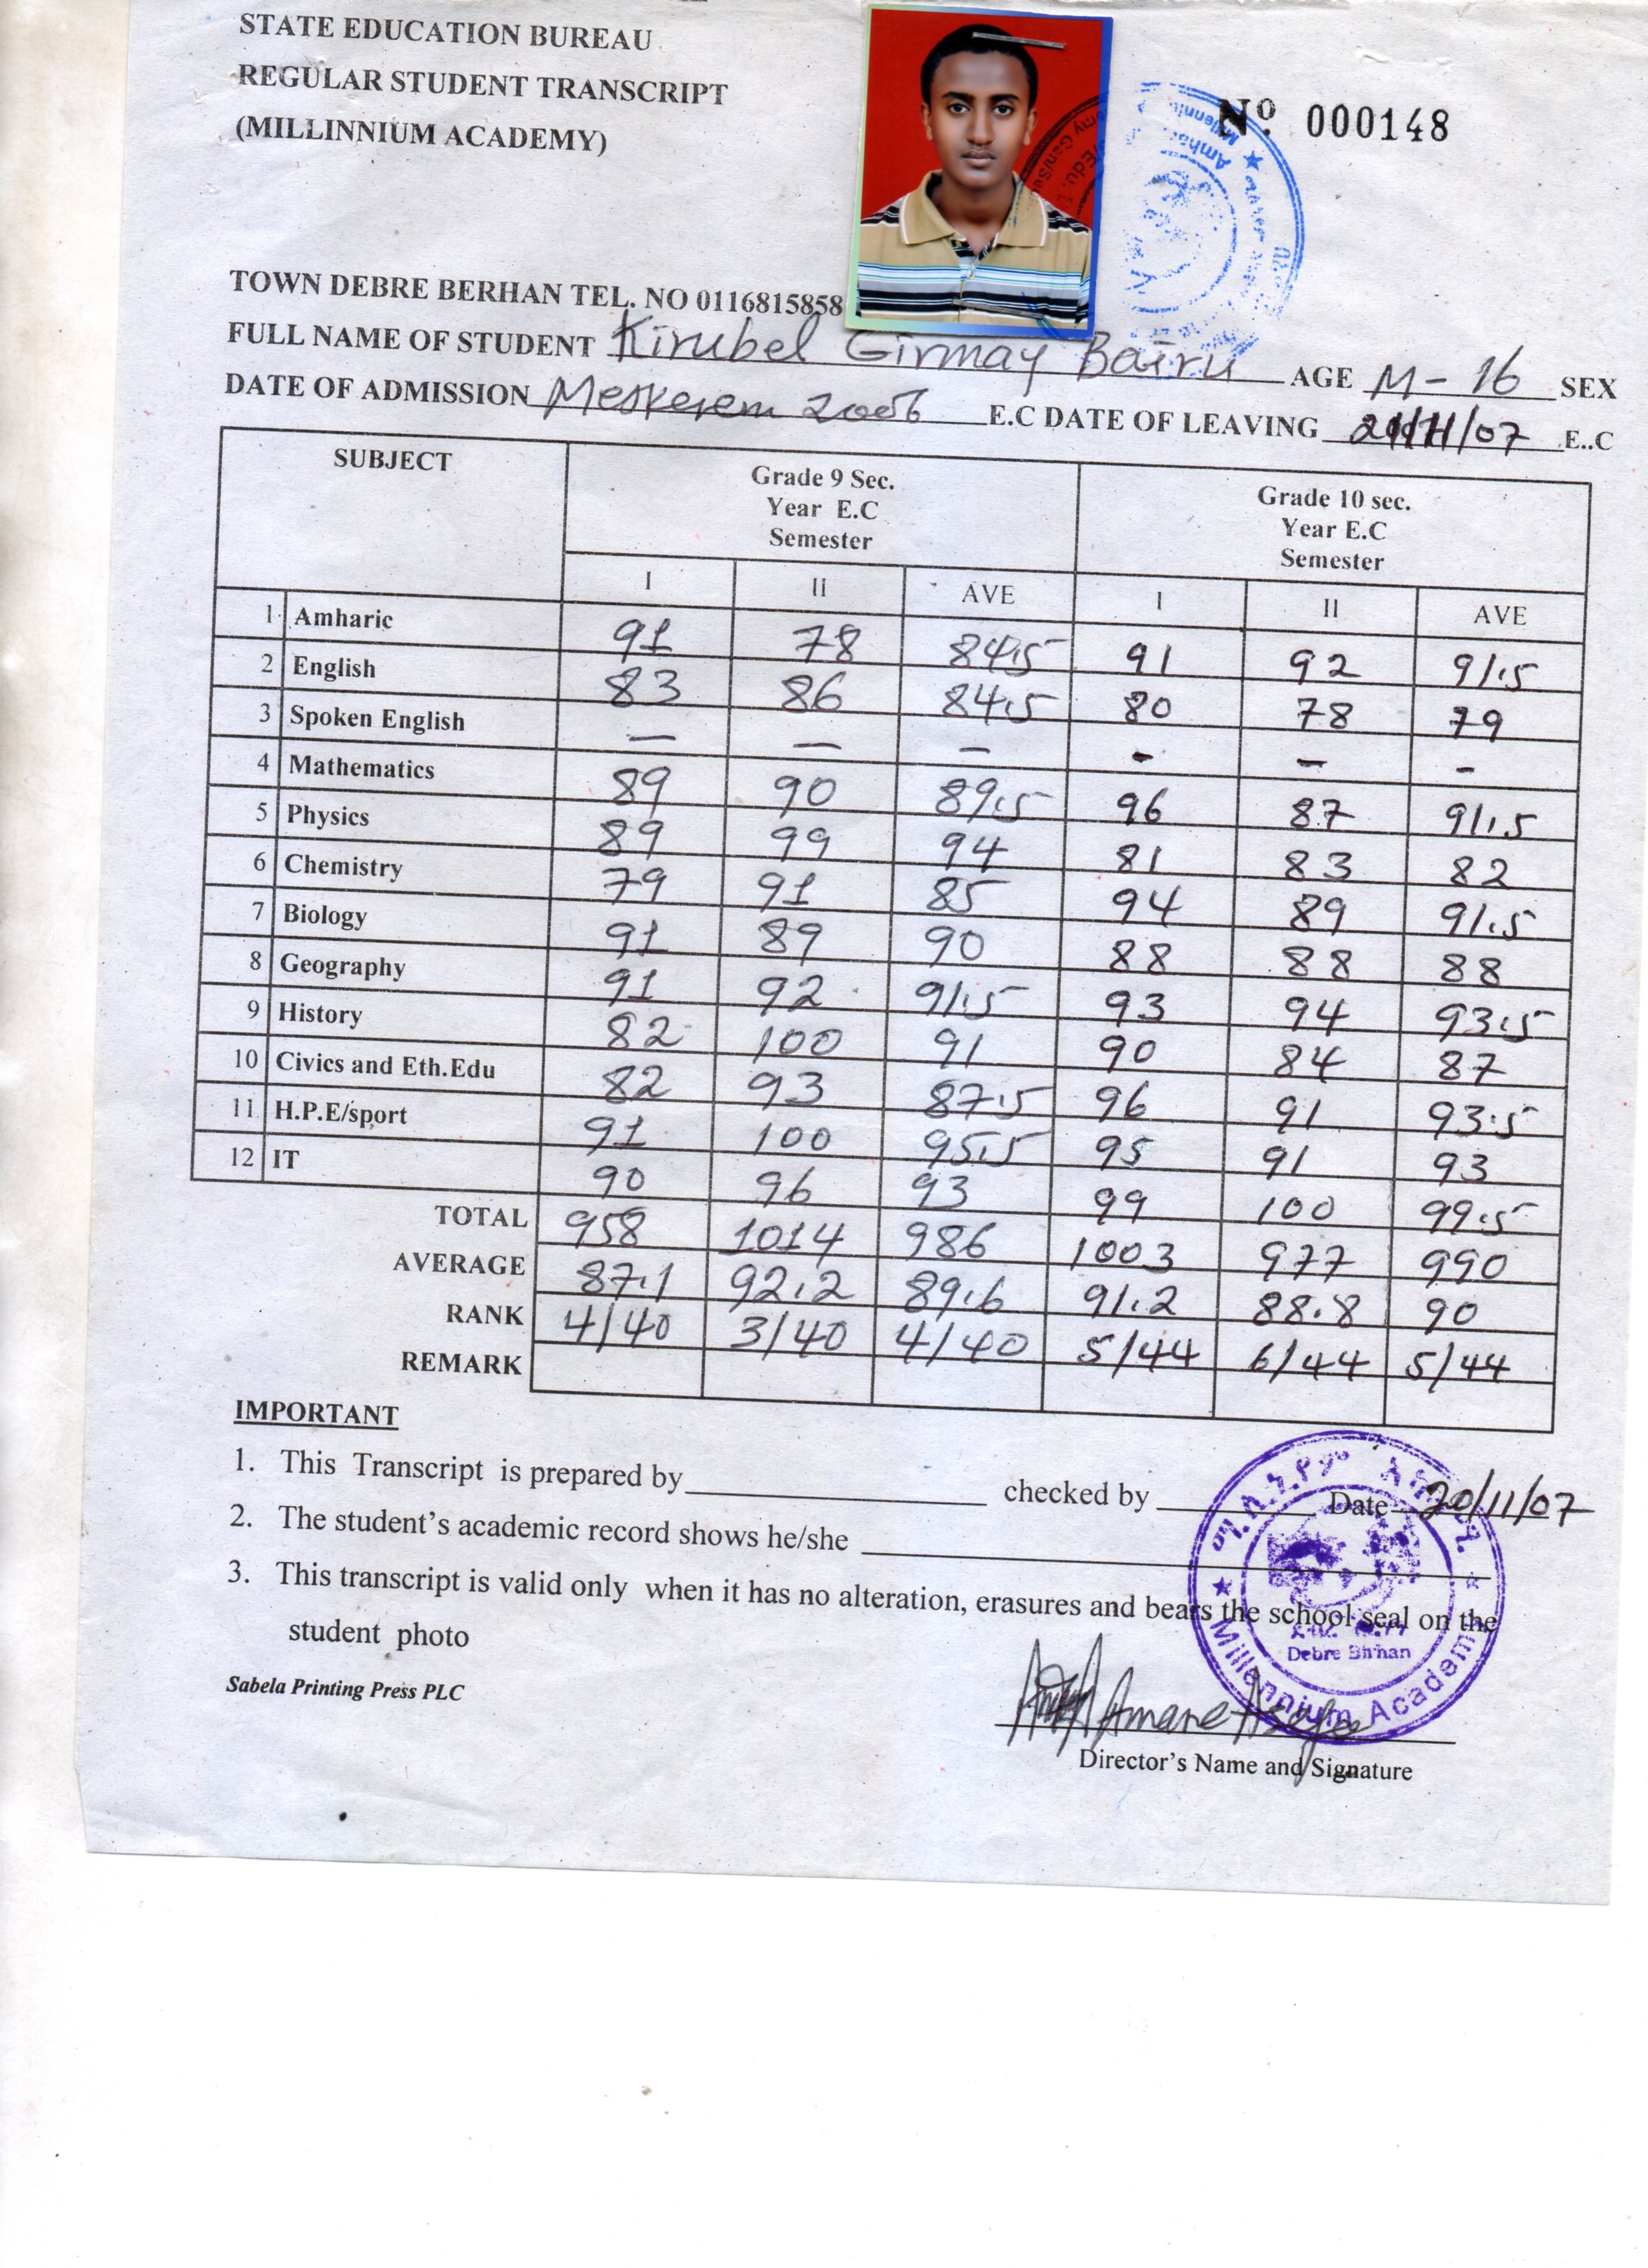 STATE EDUCATION BUREAU
REGULAR STUDENT TRANSCRIPT
(MILLINNIUM ACADEMY)
Nº 000148
TOWN DEBRE BERHAN TEL. NO 0116815858
FULL NAME OF STUDENT Kirubel Girmay Bairu AGE M-16 SEX
DATE OF ADMISSION Meskerem 2006 E.C DATE OF LEAVING /11/07 E..C
SUBJECT Grade 9 Sec. Grade 10 sec.
Year E.C Year E.C
Semester Semester
I II AVE I II AVE
1 Amharic 91 78 84.5 91 92 91.5
2 English 83 86 84.5 80 78 79
3 Spoken English — — – - – -
4 Mathematics 89 90 89.5 96 87 91.5
5 Physics 89 99 94 81 83 82
6 Chemistry 79 91 85 94 89 91.5
7 Biology 91 89 90 88 88 88
8 Geography 91 92 91.5 93 94 93.5
9 History 82 100 91 90 84 87
10 Civics and Eth.Edu 82 93 87.5 96 91 93.5
11 H.P.E/sport 91 100 95.5 95 91 93
12 IT 90 96 93 99 100 99.5
TOTAL 958 1014 986 1003 977 990
AVERAGE 87.1 92.2 89.6 91.2 88.8 90
RANK 4/40 3/40 4/40 5/44 6/44 5/44
REMARK
IMPORTANT
1. This Transcript is prepared by checked by Date 20/11/07
2. The student's academic record shows he/she
3. This transcript is valid only when it has no alteration, erasures and bears the school seal on the
student photo
ሚሊኒየም አካዳሚ
Debre Birhan
Millennium Academy
Sabela Printing Press PLC
Amare Asefa
Director's Name and Signature